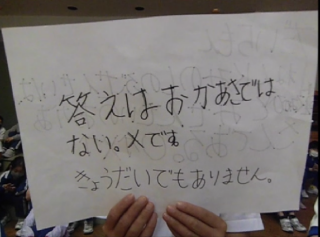 答えはおかあさでは
ない。メです。
きょうだいでもありません。